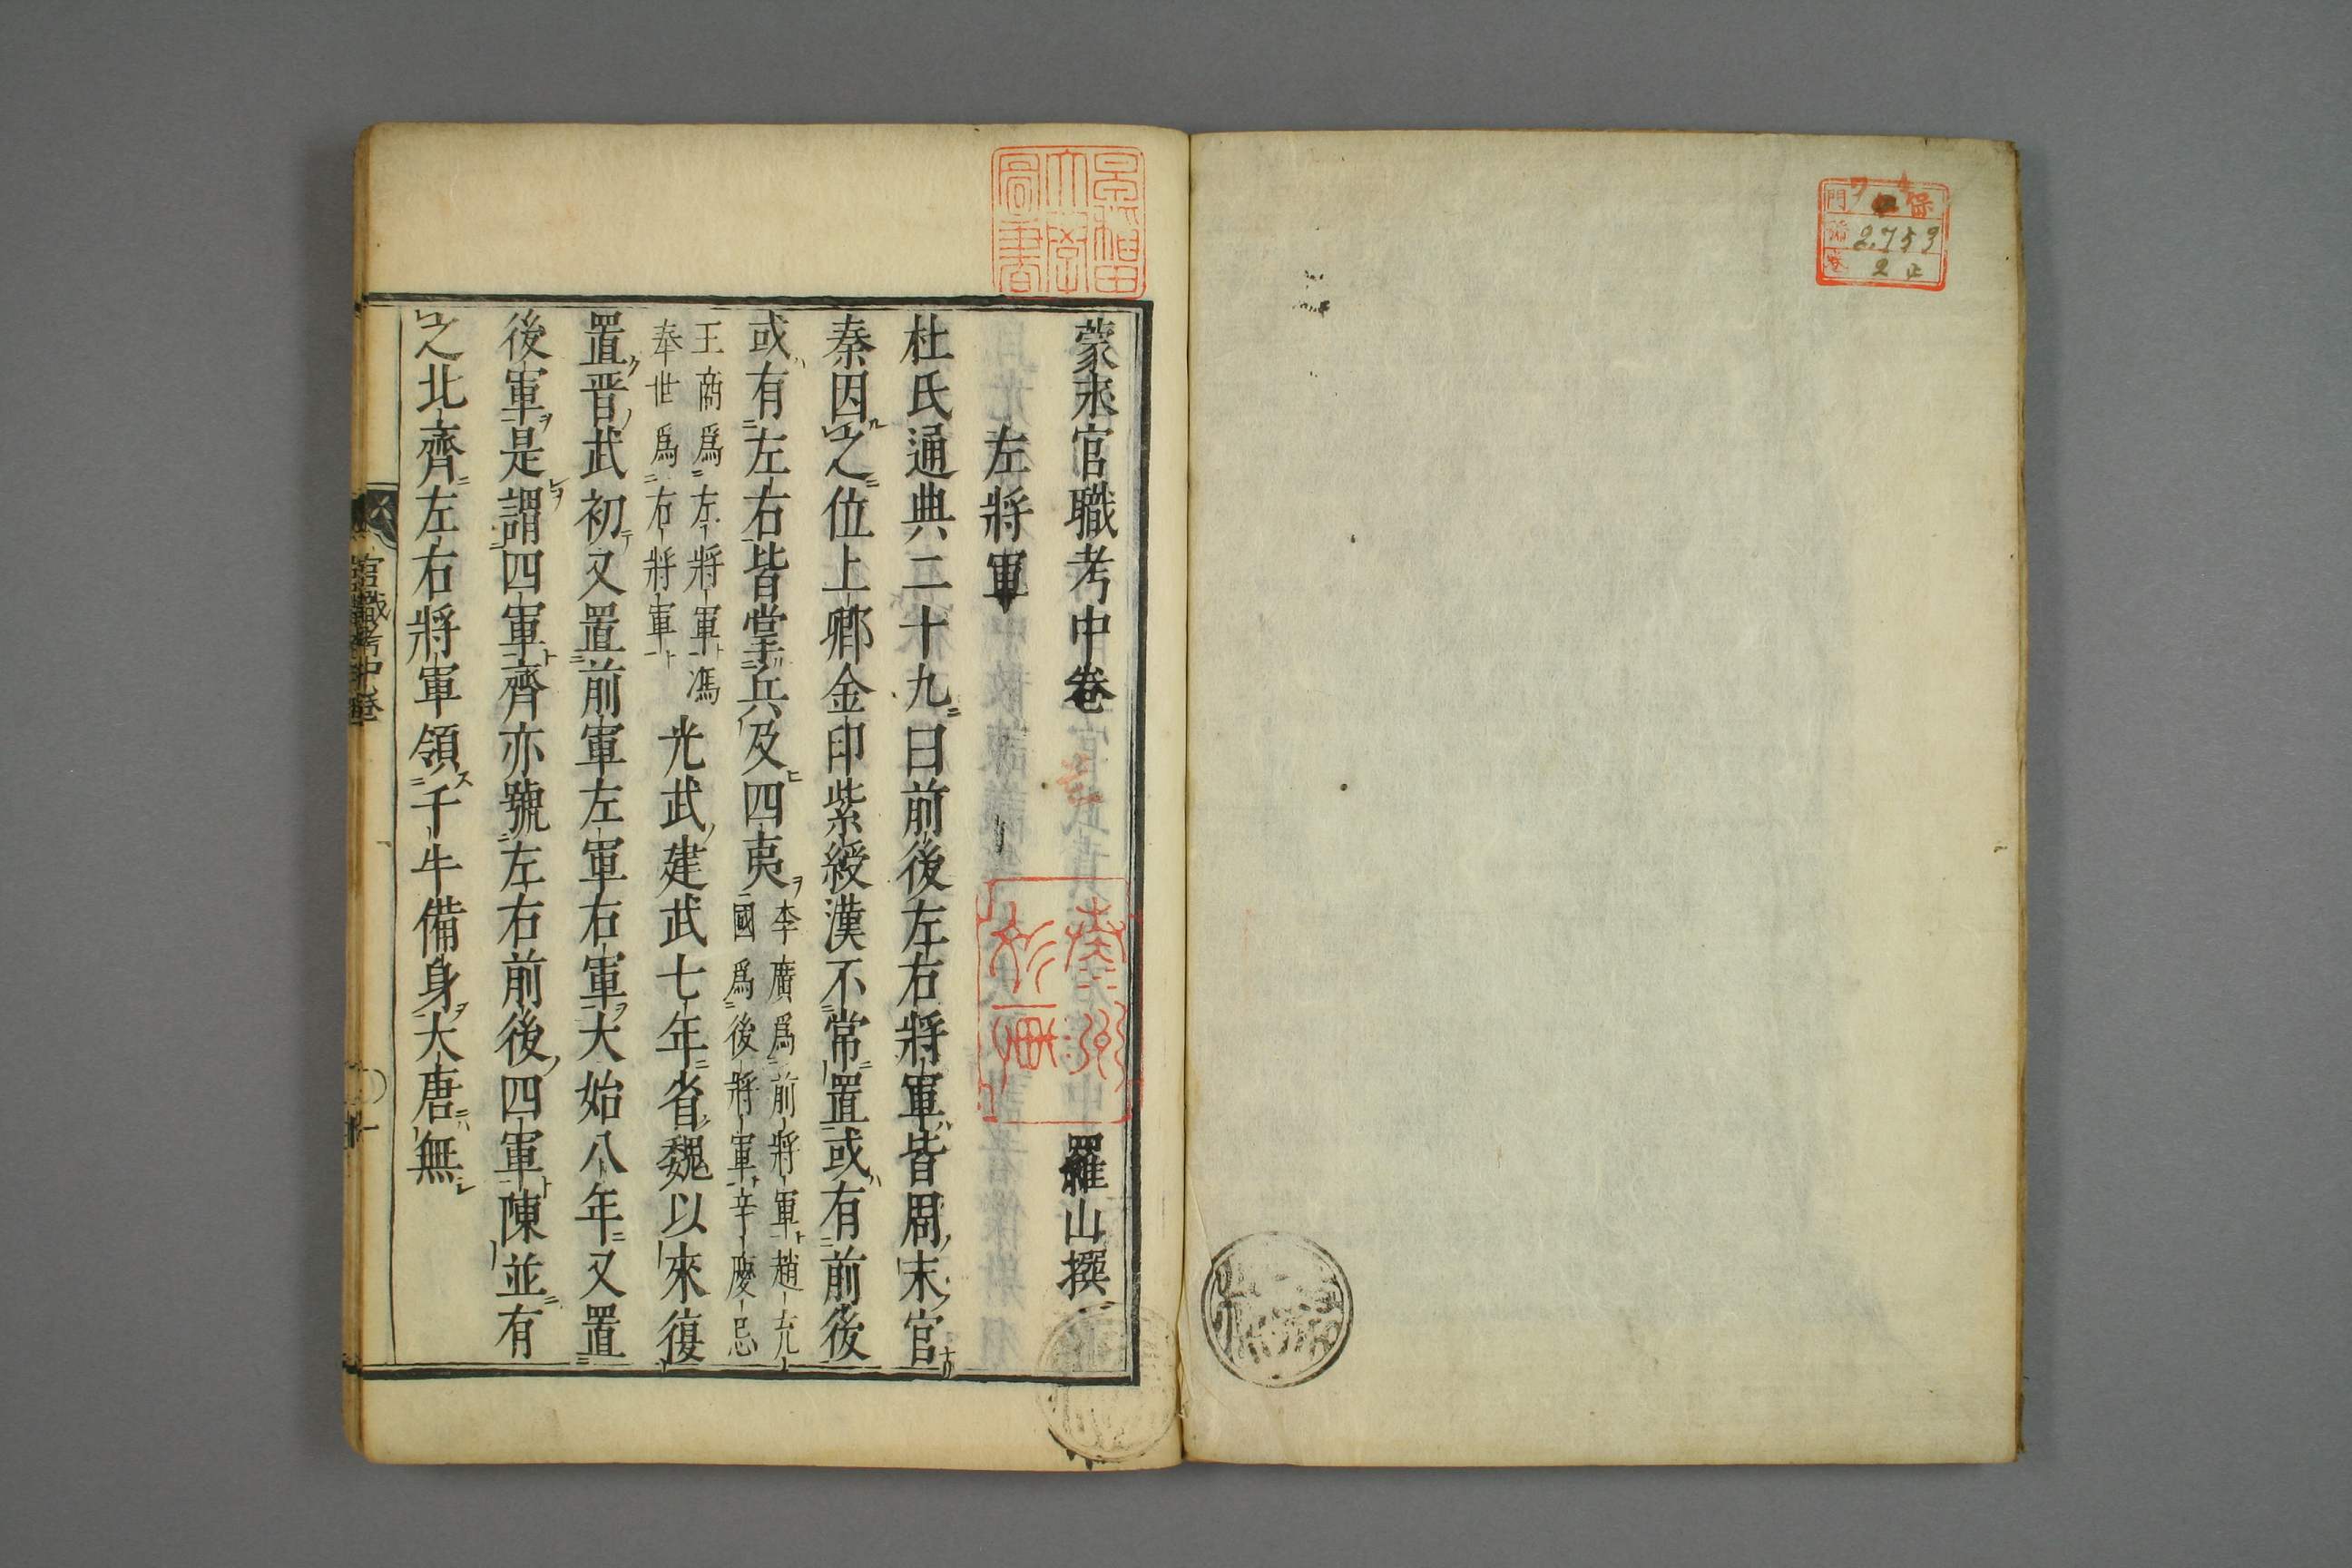 蒙求官職考中卷
羅山撰
左將軍
杜氏通典二十九曰前後左右將軍皆周末官
秦因之位上卿金印紫綬漢不常置或有前後
或有左右皆掌兵及四夷
李廣爲前將軍趙充
國爲後將軍辛慶忌
王商爲左將軍馮
奉世爲右將軍
光武建武七年省魏以來復
置晋武初又置前軍左軍右軍大始八年又置
後軍是謂四軍齊亦號左右前後四軍陳並有
之北齊左右將軍領千牛備身大唐無
官職考中卷
一
早稻田大學圖書
門
號 2759
卷 2